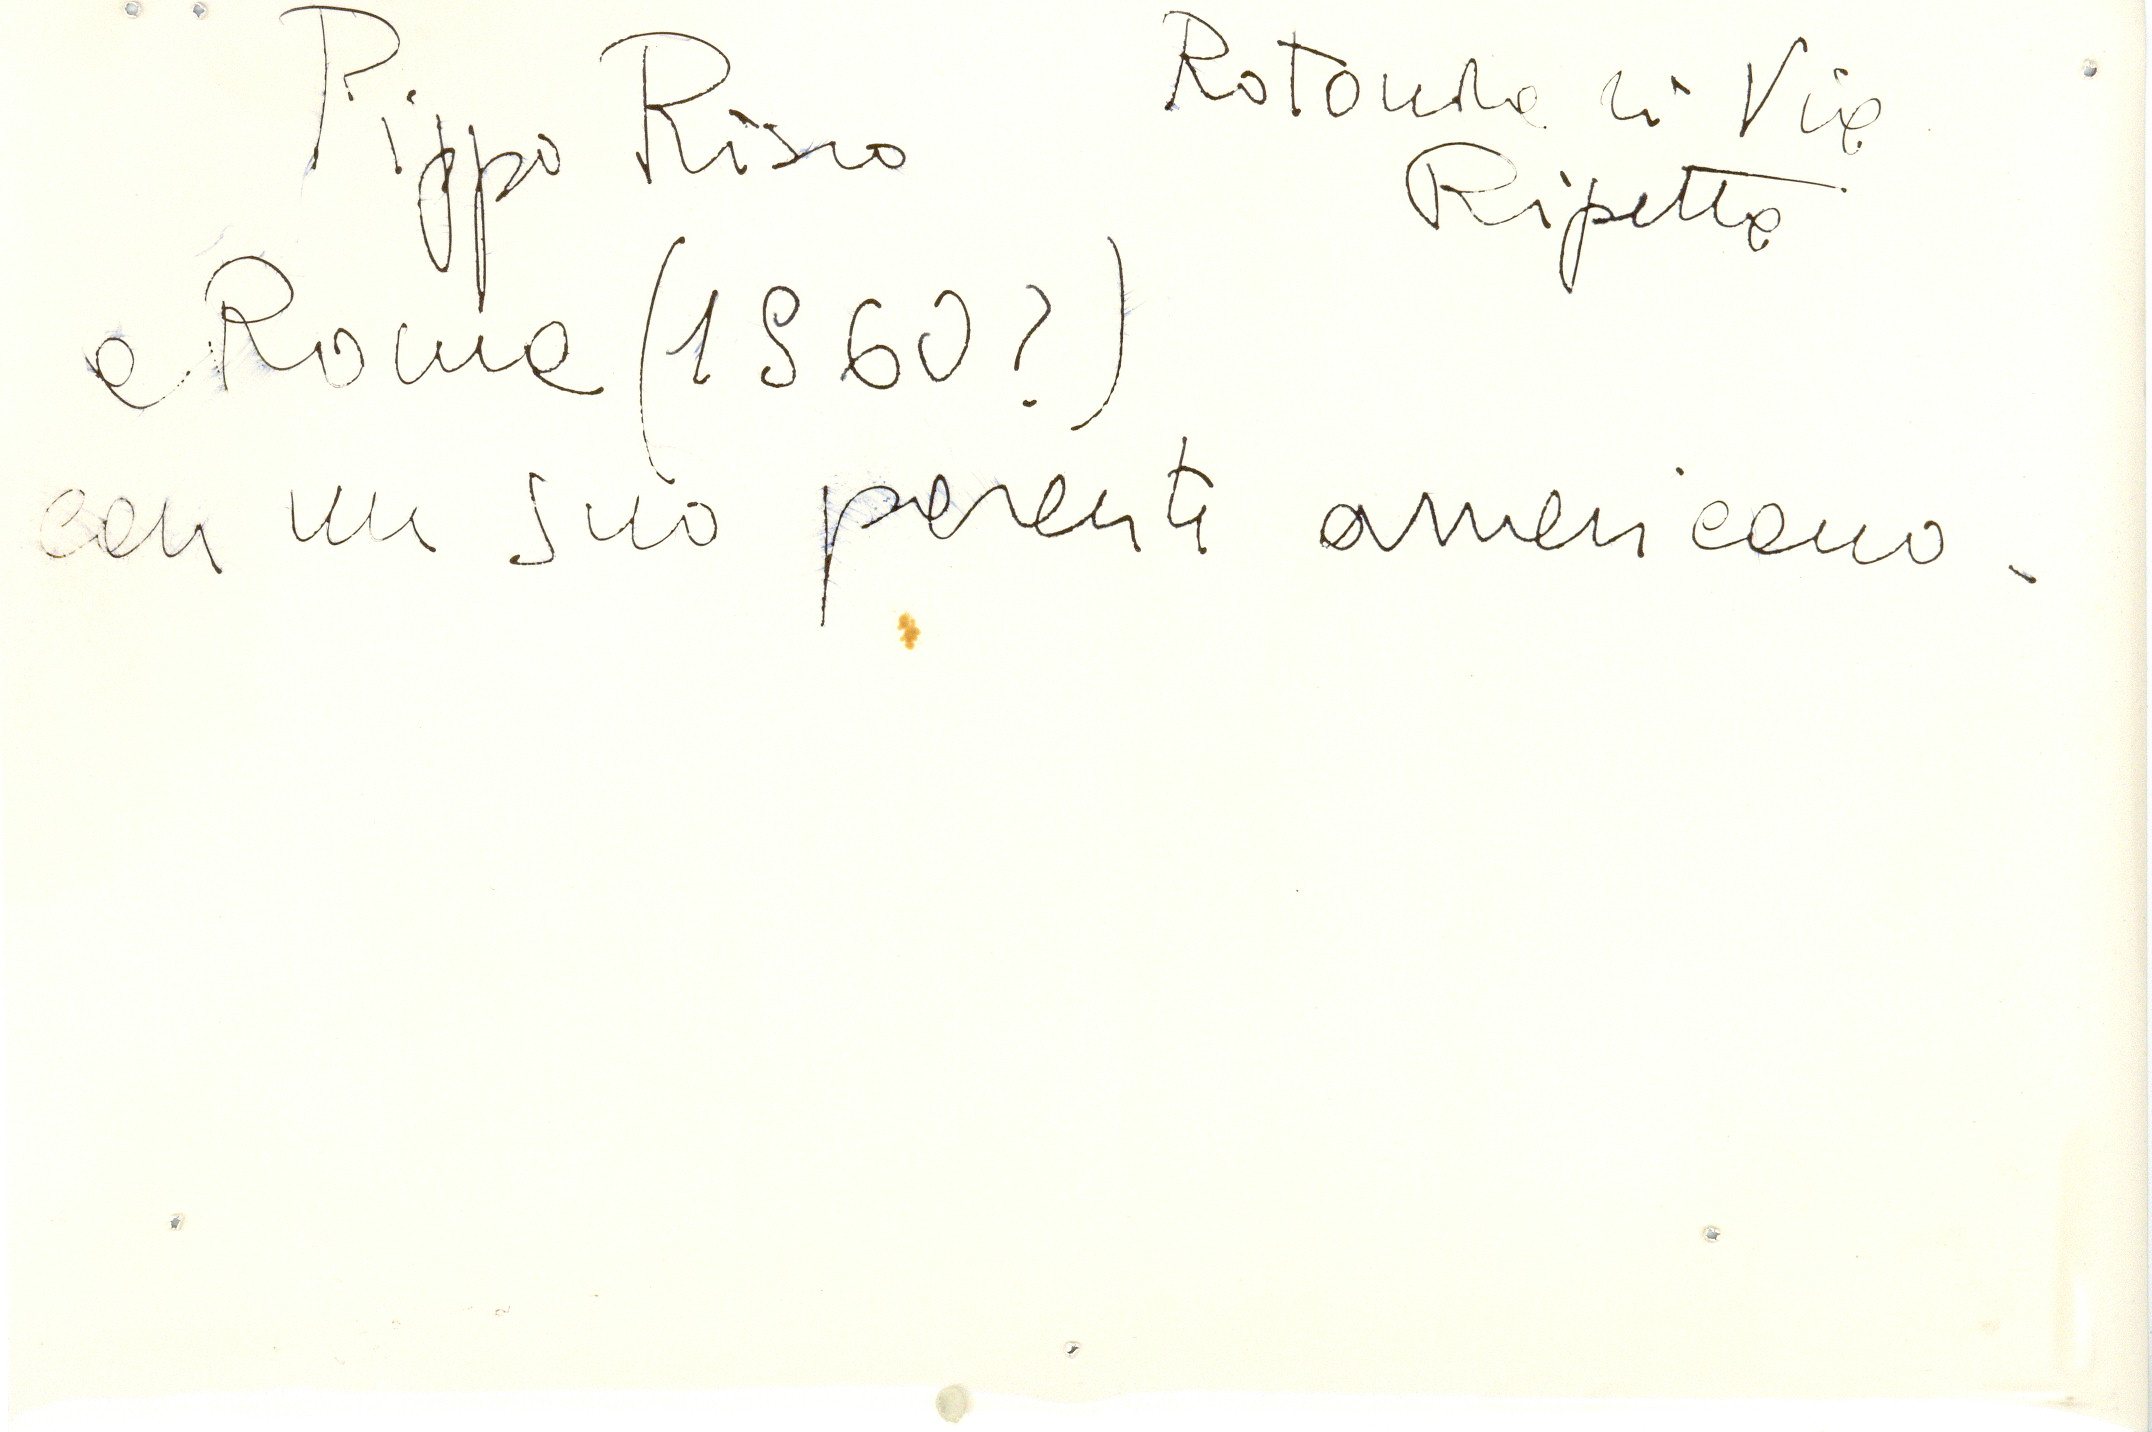 Pippo Rizzo
Rotonda di Via
Ripetta
a Roma (1960?)
con un suo parente americano.